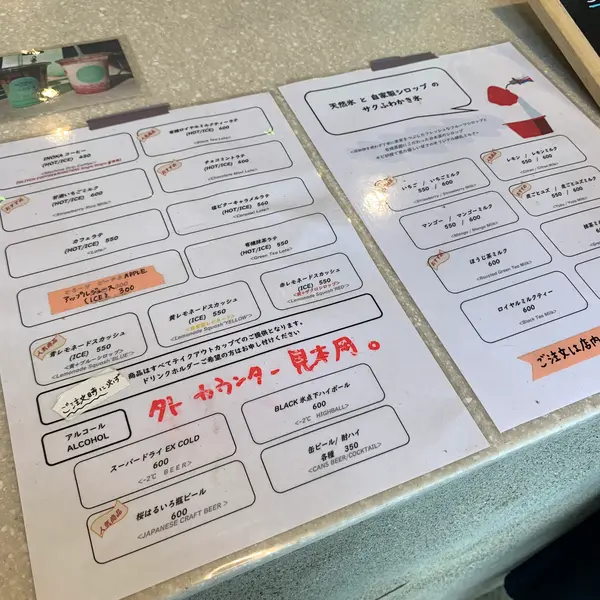 INOKA コーヒー
(HOT/ICE) 450
有機ロイヤルミルクティーラテ
(HOT/ICE) 600
<Black Tea Latte>
有機いちごミルク
(HOT/ICE) 600
<Strawberry Milk>
チョコミントラテ
(HOT/ICE) 560
<Chocolate Mint Latte>
カフェラテ
(HOT/ICE) 550
<Latte>
塩ビターキャラメルラテ
(HOT/ICE) 560
<Caramel Latte>
APPLE
アップルジュース
(ICE) 300
有機抹茶ラテ
(HOT/ICE) 550
<Green Tea Latte>
人気商品
青レモネードスカッシュ
(ICE) 550
<Lemonade Squash"BLUE">
黄レモネードスカッシュ
(ICE) 550
<Lemonade Squash"YELLOW">
赤レモネードスカッシュ
(ICE) 550
<Lemonade Squash"RED">
商品はすべてテイクアウトカップでのご提供となります。
ドリンクホルダーご希望の方はお申し付けください
ご注文時に必ず
外カウンター見本用。
アルコール
ALCOHOL
スーパードライ EX COLD
600
<-2℃ BEER>
BLACK 氷点下ハイボール
600
<-2℃ HIGHBALL>
人気商品
桜はるいろ瓶ビール
600
<JAPANESE CRAFT BEER>
缶ビール/ 酎ハイ
各種 350
<CANS BEER/COCKTAIL>
天然氷 と 自家製シロップ の
サクふわかき氷
いちご / いちごミルク
550 / 600
<Strawberry / Strawberry Milk>
レモン / レモンミルク
550 / 600
マンゴー / マンゴーミルク
550 / 600
<Mango / Mango Milk>
皮ごとユズ / 皮ごとユズミルク
550 / 600
<Yuzu / Yuzu Milk>
ほうじ茶ミルク
600
<Roasted Green Tea Milk>
抹茶ミ
600
ロイヤルミルクティー
600
<Black Tea Milk>
ご注文は店内